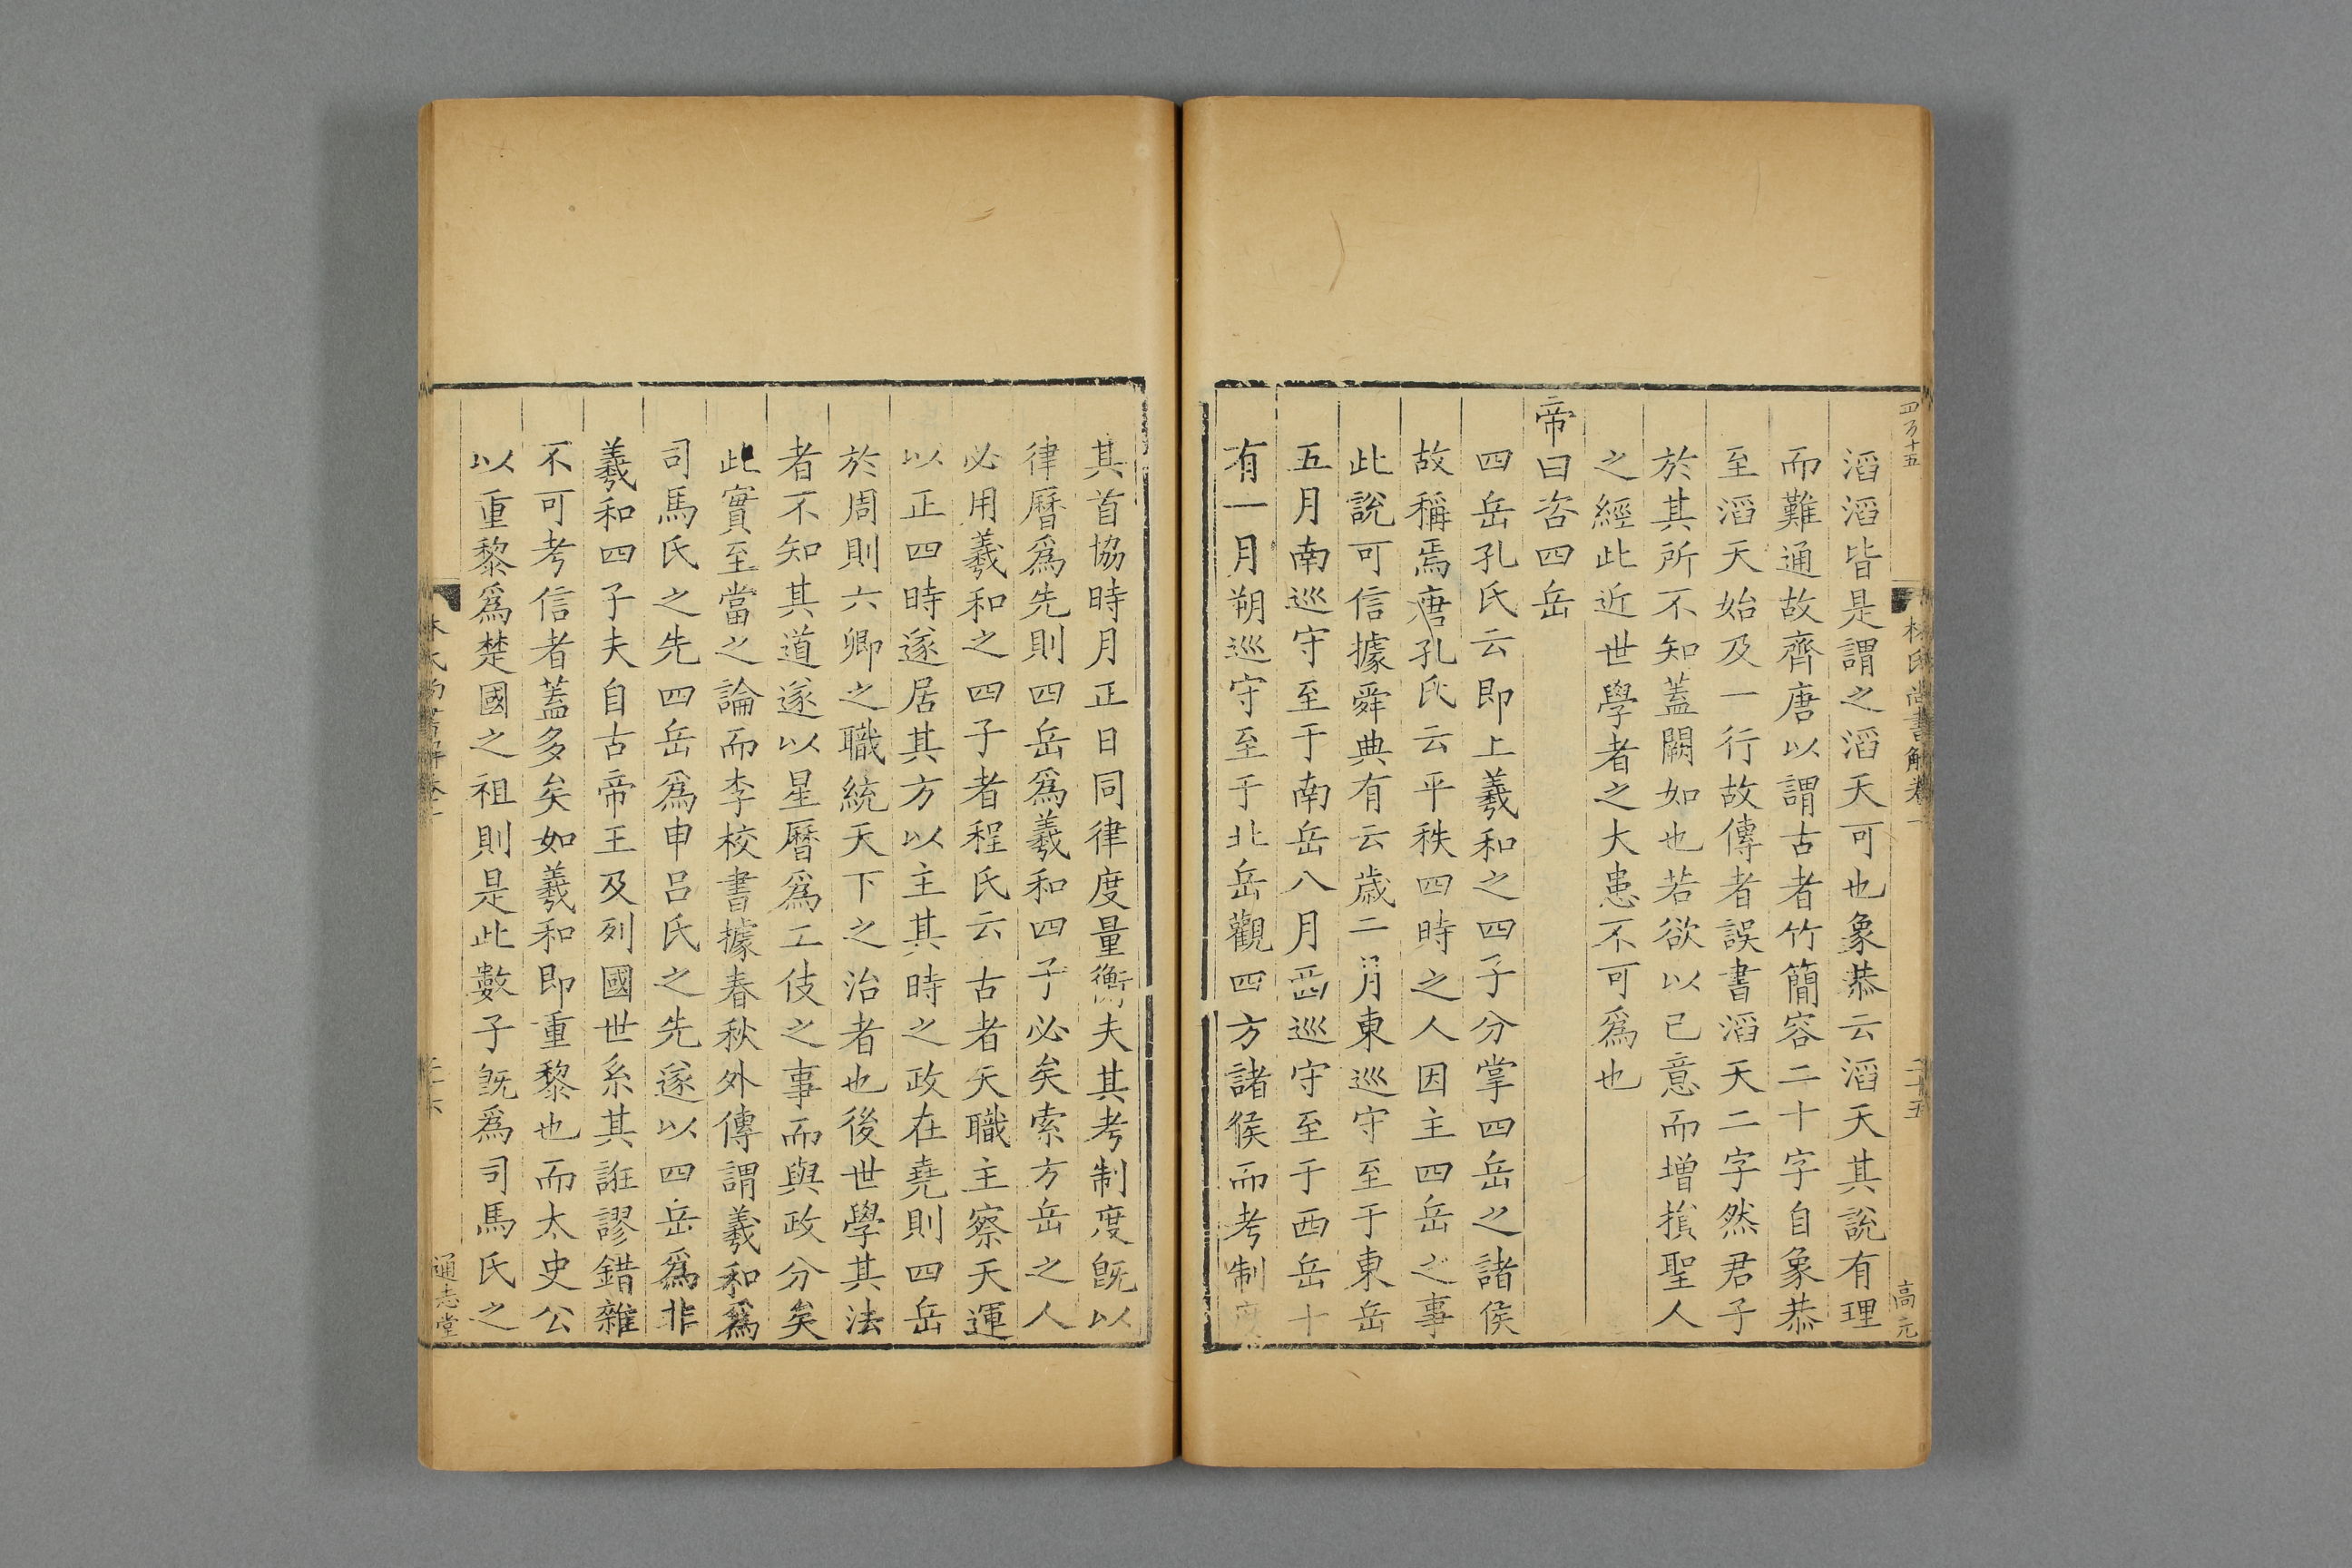 四百十五
林氏尚書解卷一
二十五
高元
滔滔皆是謂之滔天可也象恭云滔天其說有理
而難通故齊唐以謂古者竹簡容二十字自象恭
至滔天始及一行故傳者誤書滔天二字然君子
於其所不知蓋闕如也若欲以已意而增損聖人
之經此近世學者之大患不可爲也
帝曰咨四岳
四岳孔氏云即上羲和之四子分掌四岳之諸侯
故稱焉唐孔氏云平秩四時之人因主四岳之事
此說可信據舜典有云歲二月東巡守至于東岳
五月南巡守至于南岳八月西巡守至于西岳十
有一月朔巡守至于北岳觀四方諸侯而考制度
其首協時月正日同律度量衡夫其考制度旣以
律曆爲先則四岳爲羲和四子必矣索方岳之人
必用羲和之四子者程氏云古者天職主察天運
以正四時遂居其方以主其時之政在堯則四岳
於周則六卿之職統天下之治者也後世學其法
者不知其道遂以星曆爲工伎之事而與政分矣
此實至當之論而李校書據春秋外傳謂羲和爲
司馬氏之先四岳爲申呂氏之先遂以四岳爲非
羲和四子夫自古帝王及列國世系其誑謬錯雜
不可考信者蓋多矣如羲和即重黎也而太史公
以重黎爲楚國之祖則是此數子旣爲司馬氏之
林氏尚書解卷一
二十六
通志堂